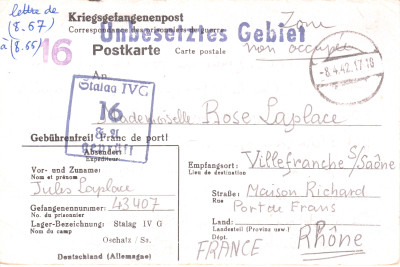 lettre de
(8.67)
à (8.66)
16
Kriegsgefangenenpost
Correspondance des prisonniers de guerre
Unbesetztes Gebiet
Zone
non occupée
Postkarte Carte postale
-8.4.42.17
An
Stalag IV G
16
Geprüft
Mademoiselle Rose Laplace
Gebührenfrei! Franc de port!
Absender:
Expéditeur:
Vor- und Zuname:
Nom et prénom
Jules Laplace
Gefangenennummer: 43407
No. du prisonnier
Lager-Bezeichnung: Stalag IV G
Nom du camp
Oschatz / Sa.
Deutschland (Allemagne)
Empfangsort: Villefranche s/Saône
Lieu de destination
Straße: Maison Richard
Rue
Port de Frans
Land:
Landesteil (Provinz usw.)
Dépt.
Rhône
FRANCE